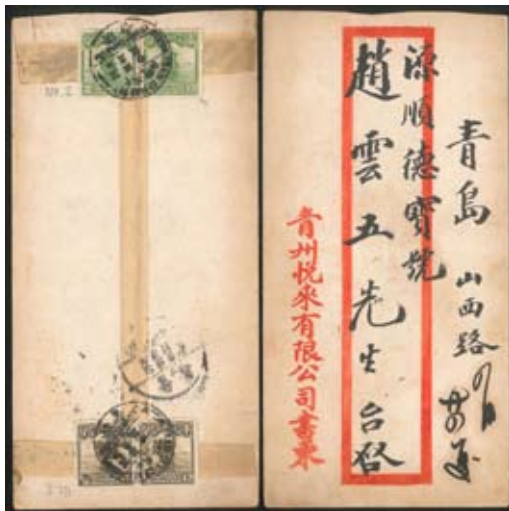 青島 山西路
源順德寶號
趙雲五先生 台啟
青州悅來有限公司書柬